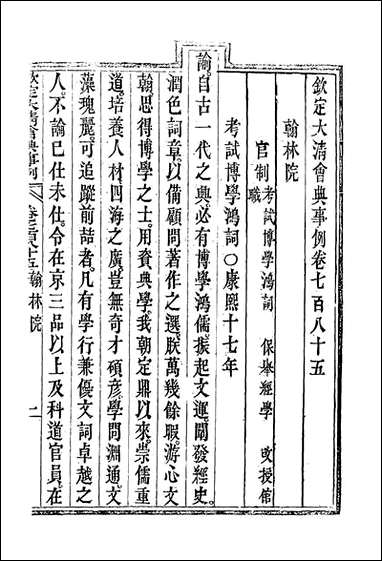 欽定大清會典事例卷七百八十五
翰林院
官制 考試博學鴻詞 保舉經學 改授館
職
考試博學鴻詞○康熙十七年
諭。自古一代之興。必有博學鴻儒。振起文運。闡發經史。
潤色詞章。以備顧問著作之選。朕萬幾餘暇。游心文
翰。思得博學之士。用資典學。我朝定鼎以來。崇儒重
道。培養人材。四海之廣。豈無奇才碩彥。學問淵通。文
藻瑰麗。可追蹤前喆者。凡有學行兼優。文詞卓越之
人。不論已仕未仕。令在京三品以上及科道官員。在
欽定大清會典事例 卷七百八十五 翰林院 二